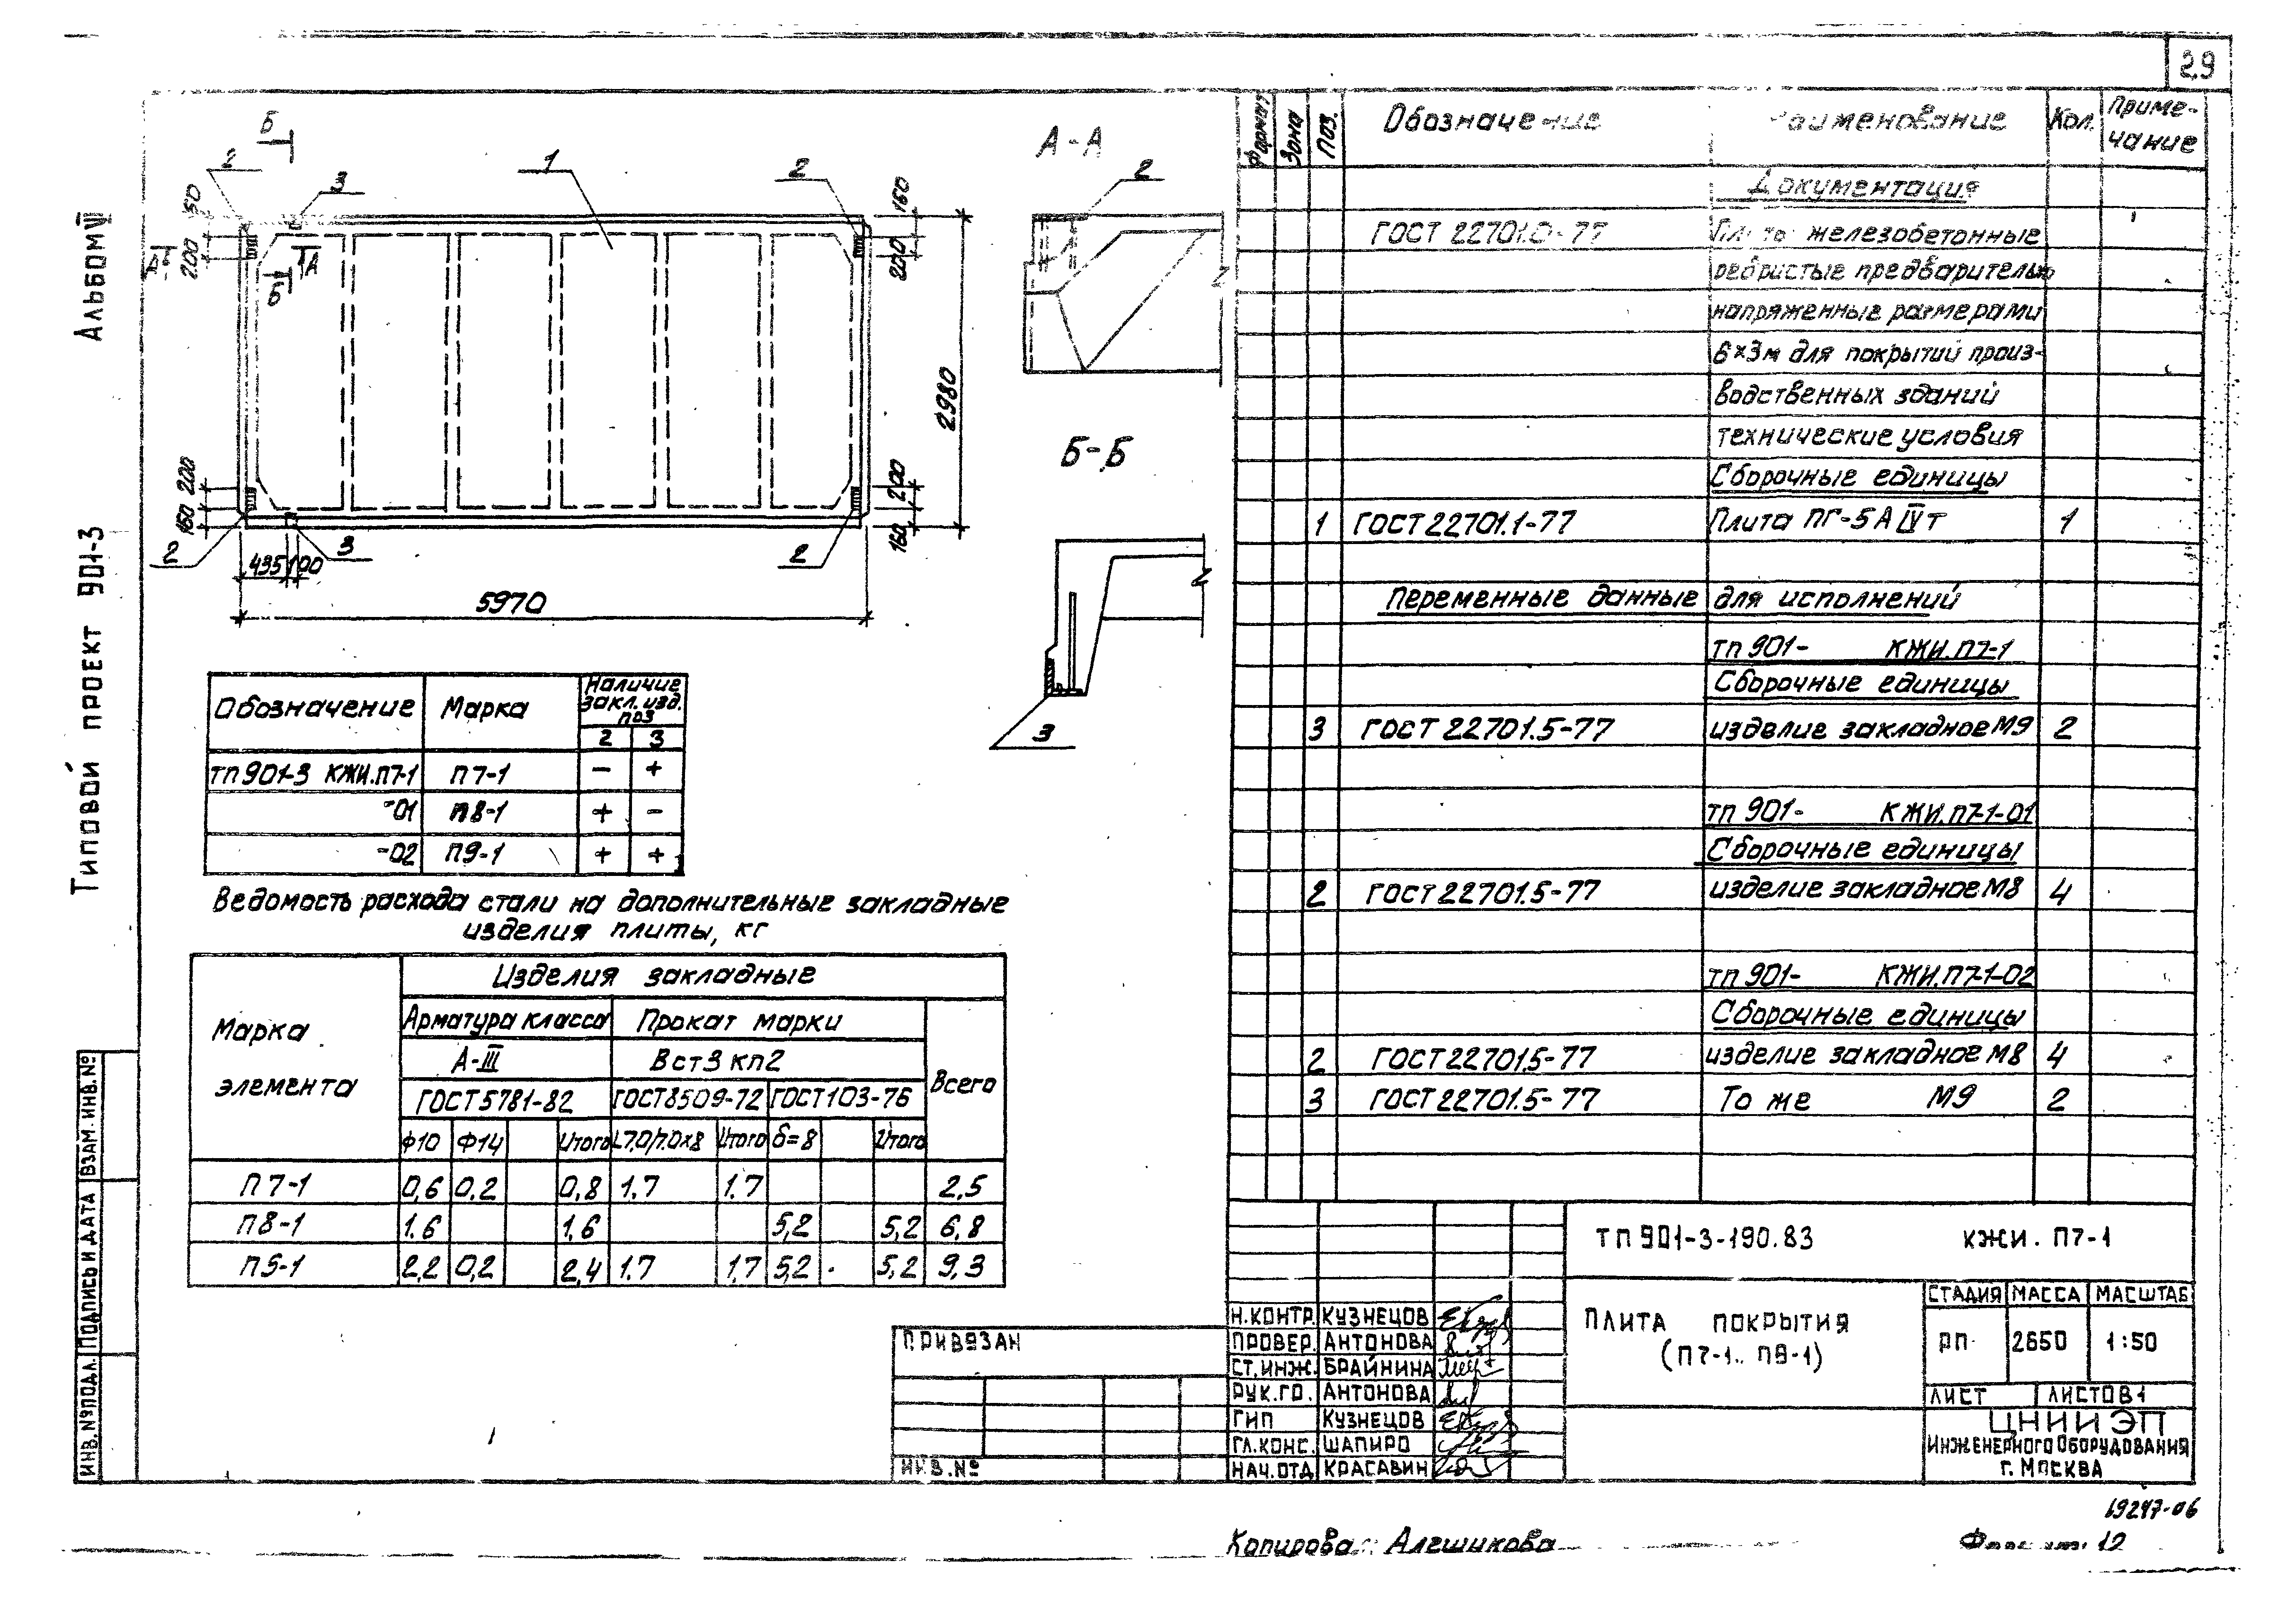 29
Альбом VI
Типовой проект 901-3
Б
2
3
1
2
А
А
Б
160
200
200
2980
200
160
200
160
2
3
2
435 100
5970
А-А
2
Б-Б
3
Обозначение Марка Наличие закл. изд. поз
2 3
тп 901-3 КЖИ.П7-1 П7-1 - +
-01 П8-1 + -
-02 П9-1 + +
Ведомость расхода стали на дополнительные закладные
изделия плиты, кг
Марка элемента
Изделия закладные
Арматура класса Прокат марки
А-III Вст3кп2 Всего
ГОСТ 5781-82 ГОСТ 8509-72 ГОСТ 103-76
Ф10 Ф14 Итого L70/70x8 Итого б=8 Итого
П7-1 0,6 0,2 0,8 1,7 1,7 2,5
П8-1 1,6 1,6 5,2 5,2 6,8
П5-1 2,2 0,2 2,4 1,7 1,7 5,2 5,2 9,3
Формат Зона Поз. Обозначение Наименование Кол. Приме-
чание
Документация
ГОСТ 22701.0-77 Плиты железобетонные
ребристые предварительно
напряженные размерами
6×3м для покрытий произ-
водственных зданий
технические условия
Сборочные единицы
1 ГОСТ 22701.1-77 Плита ПГ-5АIVт 1
Переменные данные для исполнений
тп 901- КЖИ.П7-1
Сборочные единицы
3 ГОСТ 22701.5-77 изделие закладное М9 2
тп 901- КЖИ.П7-1-01
Сборочные единицы
2 ГОСТ 22701.5-77 изделие закладное М8 4
тп 901- КЖИ.П7-1-02
Сборочные единицы
2 ГОСТ 22701.5-77 изделие закладное М8 4
3 ГОСТ 22701.5-77 То же М9 2
ТП 901-3-190.83 КЖИ. П7-1
ПЛИТА ПОКРЫТИЯ
(П7-1.. П9-1)
СТАДИЯ МАССА МАСШТАБ
РП 2650 1:50
ЛИСТ ЛИСТОВ 1
ЦНИИЭП
ИНЖЕНЕРНОГО ОБОРУДОВАНИЯ
Г. МОСКВА
Н.КОНТР. КУЗНЕЦОВ
ПРОВЕР. АНТОНОВА
СТ.ИНЖ. БРАЙНИНА
РУК.ГР. АНТОНОВА
ГИП КУЗНЕЦОВ
ГЛ.КОНС. ШАПИРО
НАЧ.ОТД КРАСАВИН
ПРИВЯЗАН
ИНВ.№
ИНВ.№ПОДЛ. ПОДПИСЬ И ДАТА ВЗАМ. ИНВ.№
19247-06
Копировал: Алешикова
Формат: 12